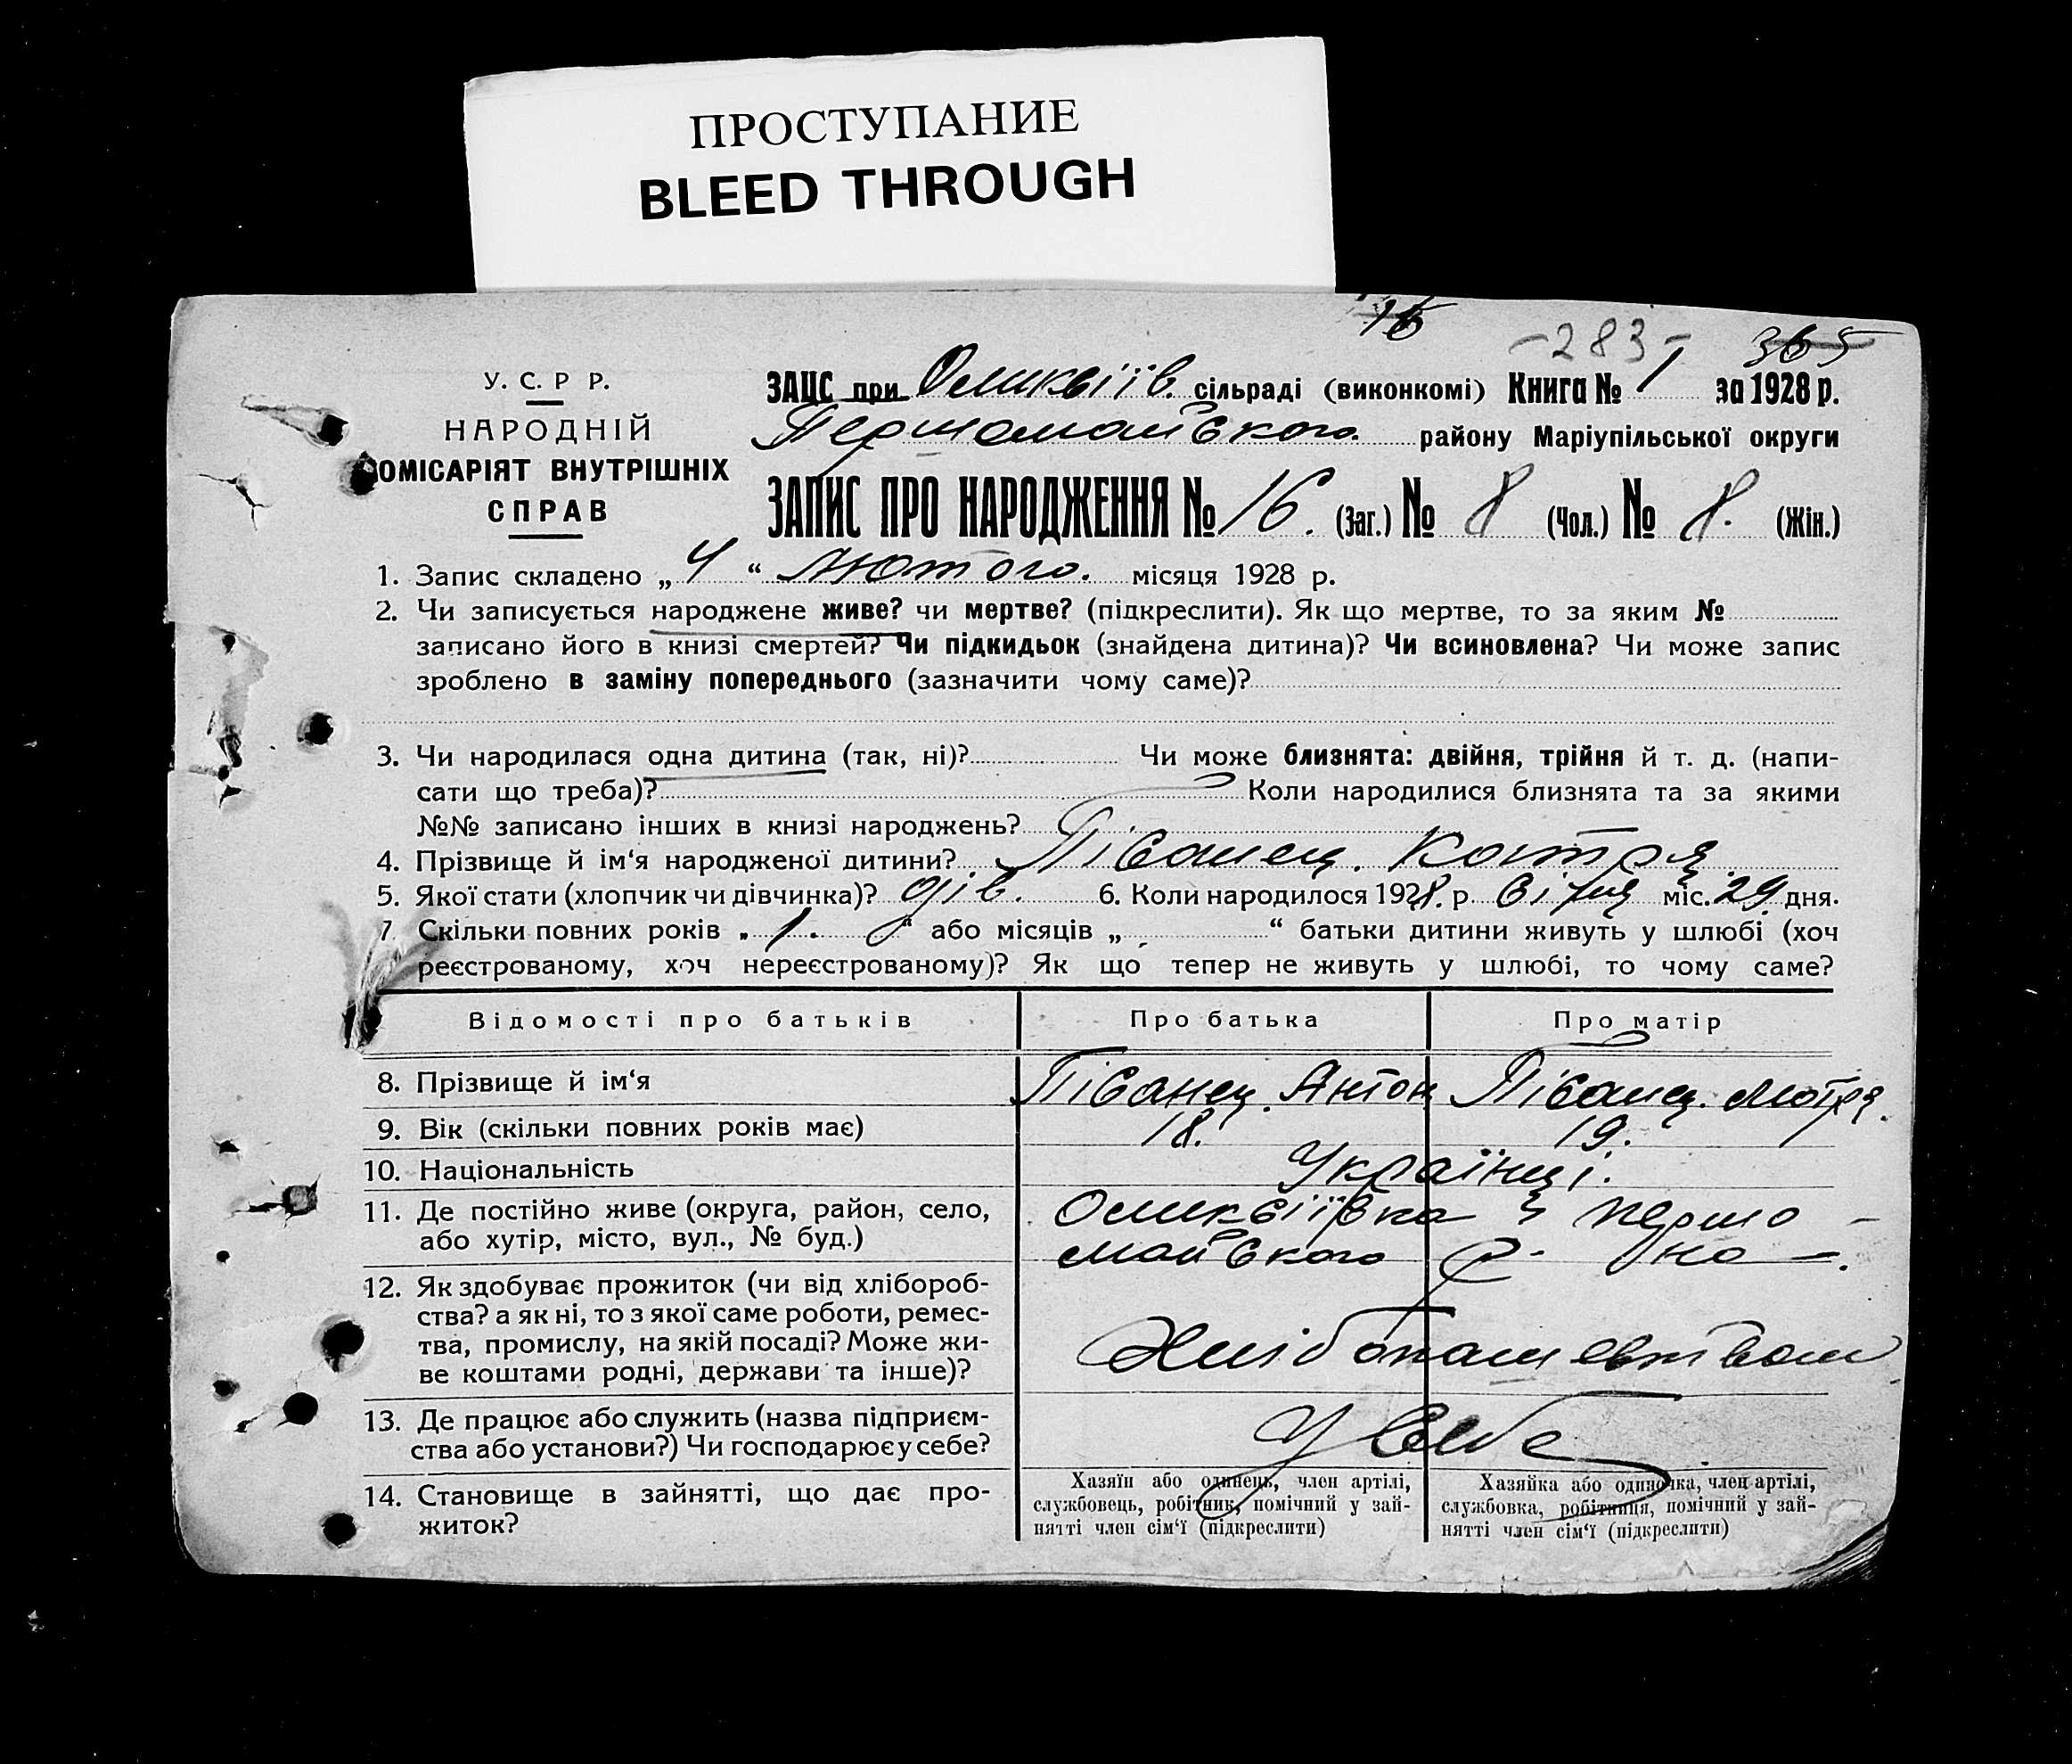 ПРОСТУПАНИЕ
BLEED THROUGH
16
-283- 365
У. С. Р Р.
НАРОДНІЙ
КОМІСАРІЯТ ВНУТРІШНІХ
СПРАВ
ЗАЦС при Оликвіїв. сільраді (виконкомі) Книга № 1 за 1928 р.
Першомайського району Маріупільської округи
ЗАПИС ПРО НАРОДЖЕННЯ № 16. (Заг.) № 8 (Чол.) № 8. (Жін.)
1. Запис складено „ 4 “ Лютого. місяця 1928 р.
2. Чи записується народжене живе? чи мертве? (підкреслити). Як що мертве, то за яким №
записано його в книзі смертей? Чи підкидьок (знайдена дитина)? Чи всиновлена? Чи може запис
зроблено в заміну попереднього (зазначити чому саме)?
3. Чи народилася одна дитина (так, ні)? Чи може близнята: двійня, трійня й т. д. (напи-
сати що треба)? Коли народилися близнята та за якими
№№ записано інших в книзі народжень?
4. Прізвище й ім‘я народженої дитини? Піванец. Катря
5. Якої стати (хлопчик чи дівчинка)? дів. 6. Коли народилося 1928. р. Січня міс. 29 дня.
7. Скільки повних років „ 1. “ або місяців „ “ батьки дитини живуть у шлюбі (хоч
реєстрованому, хоч нереєстрованому)? Як що тепер не живуть у шлюбі, то чому саме?
Відомості про батьків Про батька Про матір
8. Прізвище й ім‘я Піванец. Антон Піванец. Мотря.
9. Вік (скільки повних років має) 18. 19.
10. Національність Українці.
11. Де постійно живе (округа, район, село, Оликвіївка Першо-
або хутір, місто, вул., № буд.) майського р-на.
12. Як здобуває прожиток (чи від хлібороб-
ства? а як ні, то з якої саме роботи, ремес-
тва, промислу, на якій посаді? Може жи- Хлібопашевством
ве коштами родні, держави та інше)?
13. Де працює або служить (назва підприєм- У себе
ства або установи?) Чи господарює у себе?
14. Становище в зайнятті, що дає про-
житок?
Хазяїн або одинець, член артілі,
службовець, робітник, помічний у зай-
нятті член сім‘ї (підкреслити)
Хазяйка або одиночка, член артілі,
службовка, робітниця, помічний у зай-
нятті член сім‘ї (підкреслити)